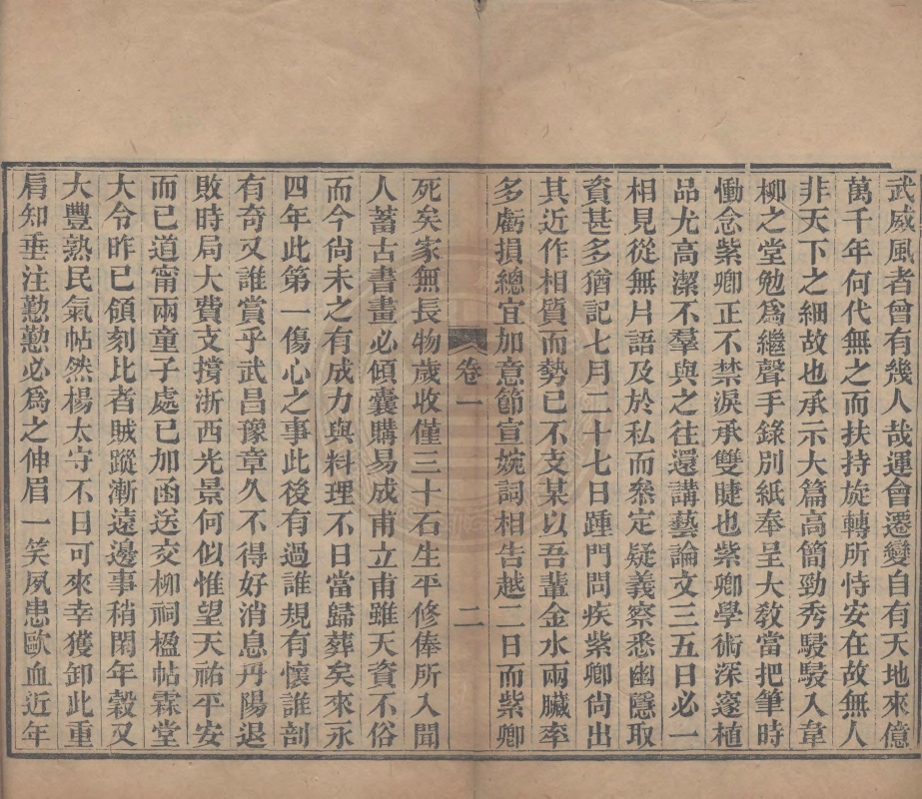 武威風者曾有幾人哉運會遷變自有天地來億
萬千年何代無之而扶持旋轉所恃安在故無人
非天下之細故也承示大篇高簡勁秀駸駸入韋
柳之堂勉爲繼聲手錄別紙奉呈大敎當把筆時
慟念紫卿正不禁淚承雙睫也紫卿學術深邃植
品尤高潔不羣與之往還講藝論文三五日必一
相見從無片語及於私而叅定疑義察悉幽隱取
資甚多猶記七月二十七日踵門問疾紫卿尙出
其近作相質而勢已不支某以吾輩金水兩臟率
多虧損總宜加意節宣婉詞相告越二日而紫卿
卷一
二
死矣家無長物歲收僅三十石生平修俸所入聞
人蓄古書畫必傾囊購易成甫立甫雖天資不俗
而今尙未之有成力與料理不日當歸葬矣來永
四年此第一傷心之事此後有過誰規有懷誰剖
有奇又誰賞乎武昌豫章久不得好消息丹陽退
敗時局大費支撐浙西光景何似惟望天祐平安
而已道甯兩童子處已加函送交柳祠楹帖霖堂
大令昨已領刻比者賊蹤漸遠邊事稍閑年穀又
大豐熟民氣帖然楊太守不日可來幸獲卸此重
肩知垂注懃懃必爲之伸眉一笑夙患歐血近年